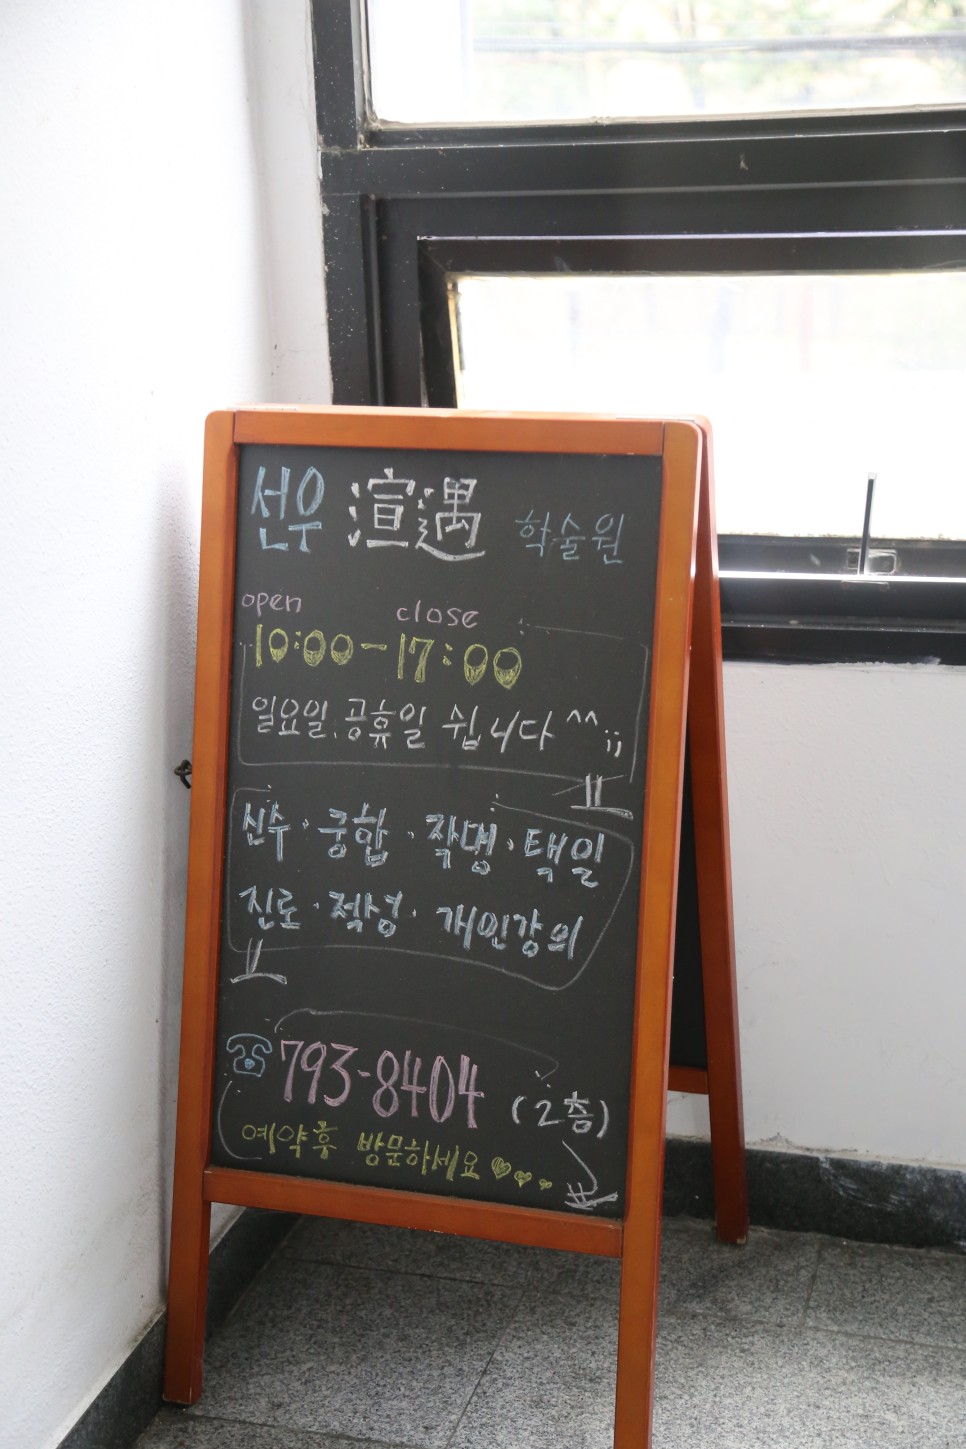 선우 渲遇 학술원
open close
10:00-17:00
일요일.공휴일 쉽니다^^;;
신수·궁합·작명·택일
진로·적성·개인강의
☎793-8404 (2층)
예약후 방문하세요♡♡♡